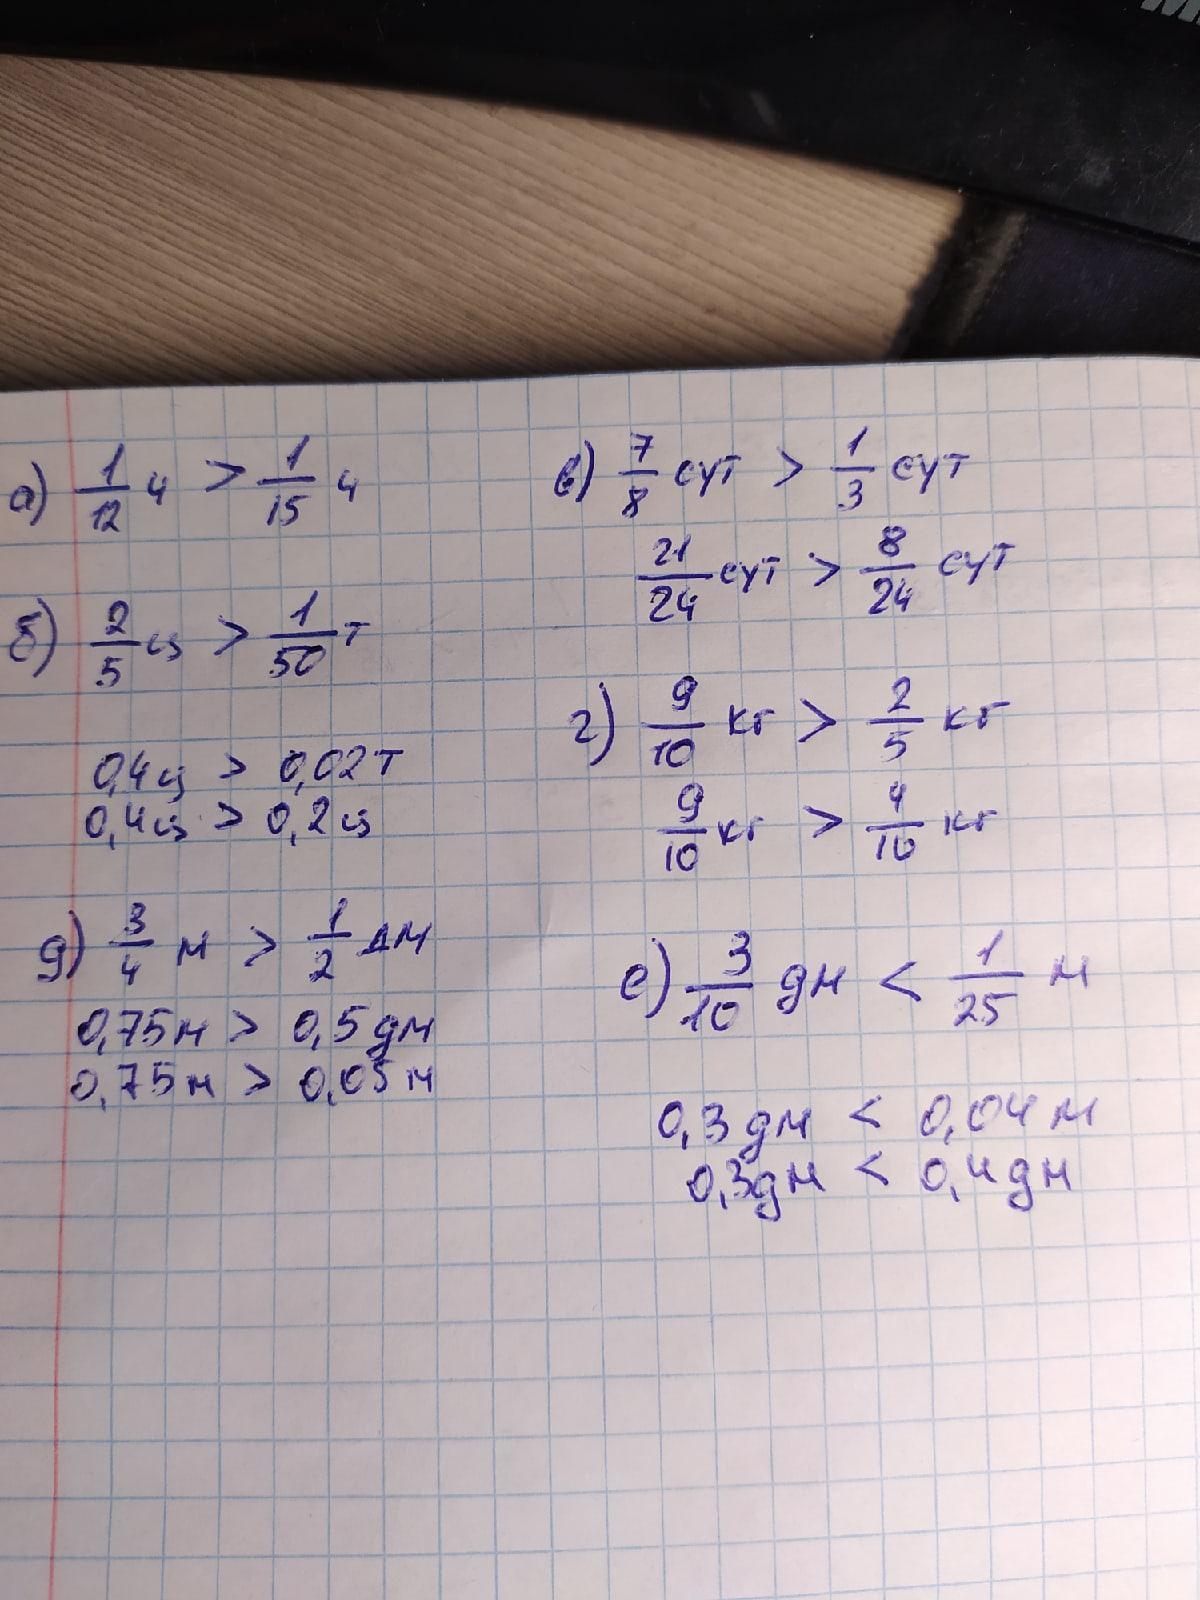 а) 1/12 ч > 1/15 ч
б) 2/5 ц > 1/50 т
0,4ц > 0,02т
0,4ц > 0,2ц
д) 3/4 м > 1/2 дм
0,75м > 0,5дм
0,75м > 0,05м
в) 7/8 сут > 1/3 сут
21/24 сут > 8/24 сут
г) 9/10 кг > 2/5 кг
9/10 кг > 4/10 кг
е) 3/10 дм < 1/25 м
0,3дм < 0,04м
0,3дм < 0,4дм